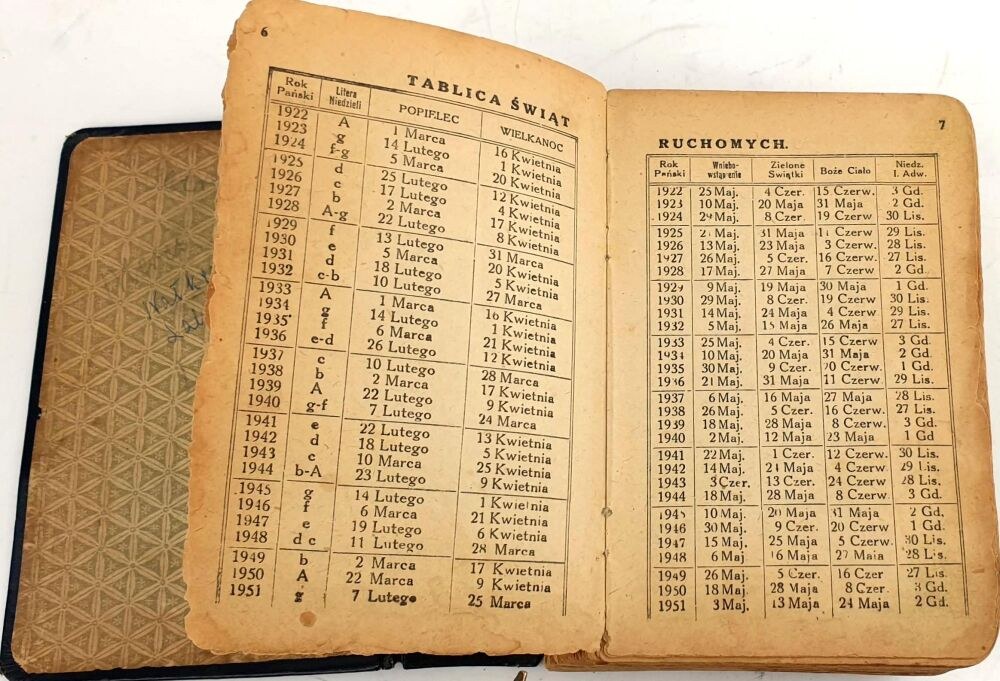 6
TABLICA ŚWIĄT
Rok Pański Litera Niedzieli POPIELEC WIELKANOC
1922 A 1 Marca 16 Kwietnia
1923 g 14 Lutego 1 Kwietnia
1924 f-g 5 Marca 20 Kwietnia
1925 d 25 Lutego 12 Kwietnia
1926 c 17 Lutego 4 Kwietnia
1927 b 2 Marca 17 Kwietnia
1928 A-g 22 Lutego 8 Kwietnia
1929 f 13 Lutego 31 Marca
1930 e 5 Marca 20 Kwietnia
1931 d 18 Lutego 5 Kwietnia
1932 c-b 10 Lutego 27 Marca
1933 A 1 Marca 16 Kwietnia
1934 g 14 Lutego 1 Kwietnia
1935 f 6 Marca 21 Kwietnia
1936 e-d 26 Lutego 12 Kwietnia
1937 c 10 Lutego 28 Marca
1938 b 2 Marca 17 Kwietnia
1939 A 22 Lutego 9 Kwietnia
1940 g-f 7 Lutego 24 Marca
1941 e 22 Lutego 13 Kwietnia
1942 d 18 Lutego 5 Kwietnia
1943 c 10 Marca 25 Kwietnia
1944 b-A 23 Lutego 9 Kwietnia
1945 g 14 Lutego 1 Kwietnia
1946 f 6 Marca 21 Kwietnia
1947 e 19 Lutego 6 Kwietnia
1948 d c 11 Lutego 28 Marca
1949 b 2 Marca 17 Kwietnia
1950 A 22 Marca 9 Kwietnia
1951 g 7 Lutego 25 Marca
7
RUCHOMYCH.
Rok Pański Wniebo-wstąpienie Zielone Świątki Boże Ciało Niedz. I. Adw.
1922 25 Maj. 4 Czer. 15 Czerw. 3 Gd.
1923 10 Maj. 20 Maja 31 Maj 2 Gd.
1924 29 Maj. 8 Czer. 19 Czerw 30 Lis.
1925 Maj. 31 Maja 11 Czerw 29 Lis.
1926 13 Maj. 23 Maja 3 Czerw. 28 Lis.
1927 26 Maj. 5 Czer. 16 Czerw. 27 Lis.
1928 17 Maj. 27 Maja 7 Czerw 2 Gd.
1929 9 Maj. 19 Maja 30 Maja 1 Gd.
1930 29 Maj. 8 Czer. 19 Czerw 30 Lis.
1931 14 Maj. 24 Maja 4 Czerw 29 Lis.
1932 5 Maj. 15 Maja 26 Maja 27 Lis.
1933 25 Maj. 4 Czer. 15 Czerw 3 Gd.
1934 10 Maj. 20 Maja 31 Maja 2 Gd.
1935 30 Maj. 9 Czer. 20 Czerw. 1 Gd.
1936 21 Maj. 31 Maja 11 Czerw 29 Lis.
1937 6 Maj. 16 Maja 27 Maja 28 Lis.
1938 26 Maj. 5 Czer. 16 Czerw. 27 Lis.
1939 18 Maj. 28 Maja 8 Czerw. 3 Gd.
1940 2 Maj. 12 Maja 23 Maja 1 Gd
1941 22 Maj. 1 Czer. 12 Czerw. 30 Lis.
1942 14 Maj. 24 Maja 4 Czerw 29 Lis.
1943 3 Czer. 13 Czer. 24 Czerw 28 Lis.
1944 18 Maj. 28 Maja 8 Czerw. 3 Gd.
1945 10 Maj. 20 Maja 31 Maja 2 Gd,
1946 30 Maj. 9 Czer. 20 Czerw. 1 Gd.
1947 15 Maj. 25 Maja 5 Czerw. 30 Lis.
1948 6 Maj. 16 Maja 27 Maia 28 Lis.
1949 26 Maj. 5 Czer. 16 Czer 27 Lis
1950 18 Maj. 28 Maja 8 Czer. 3 Gd.
1951 3 Maj. 13 Maja 24 Maja 2 Gd.